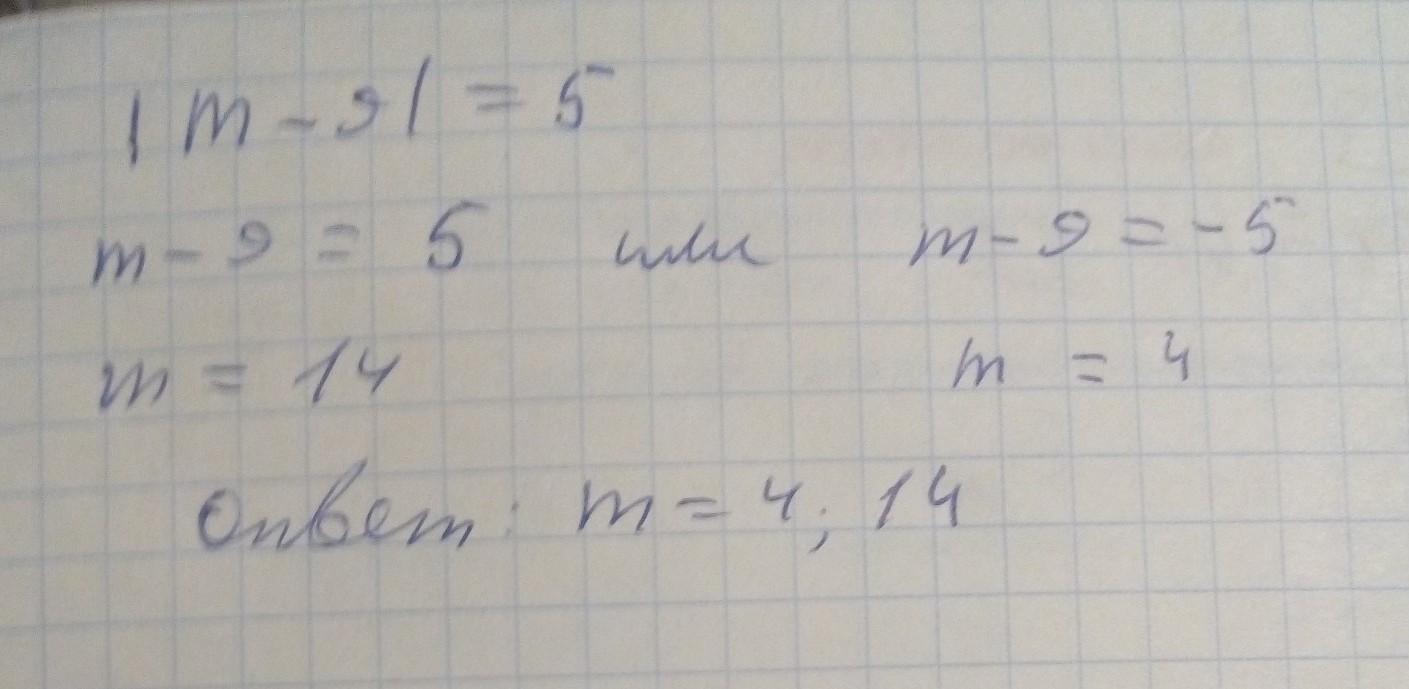 |m - 9| = 5
m - 9 = 5 или m - 9 = - 5
m = 14 m = 4
Ответ: m = 4; 14